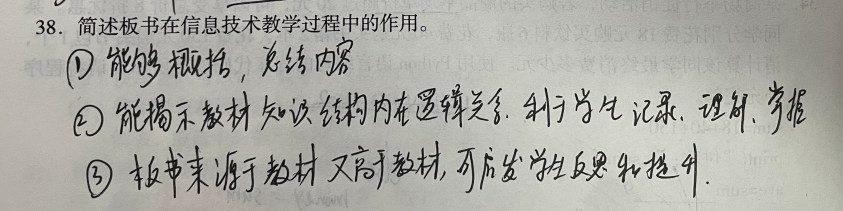 38. 简述板书在信息技术教学过程中的作用。
① 能够概括，总结内容
② 能揭示教材知识结构内在逻辑关系. 利于学生记录、理解、掌握
③ 板书来源于教材又高于教材, 可启发学生反思和提升.